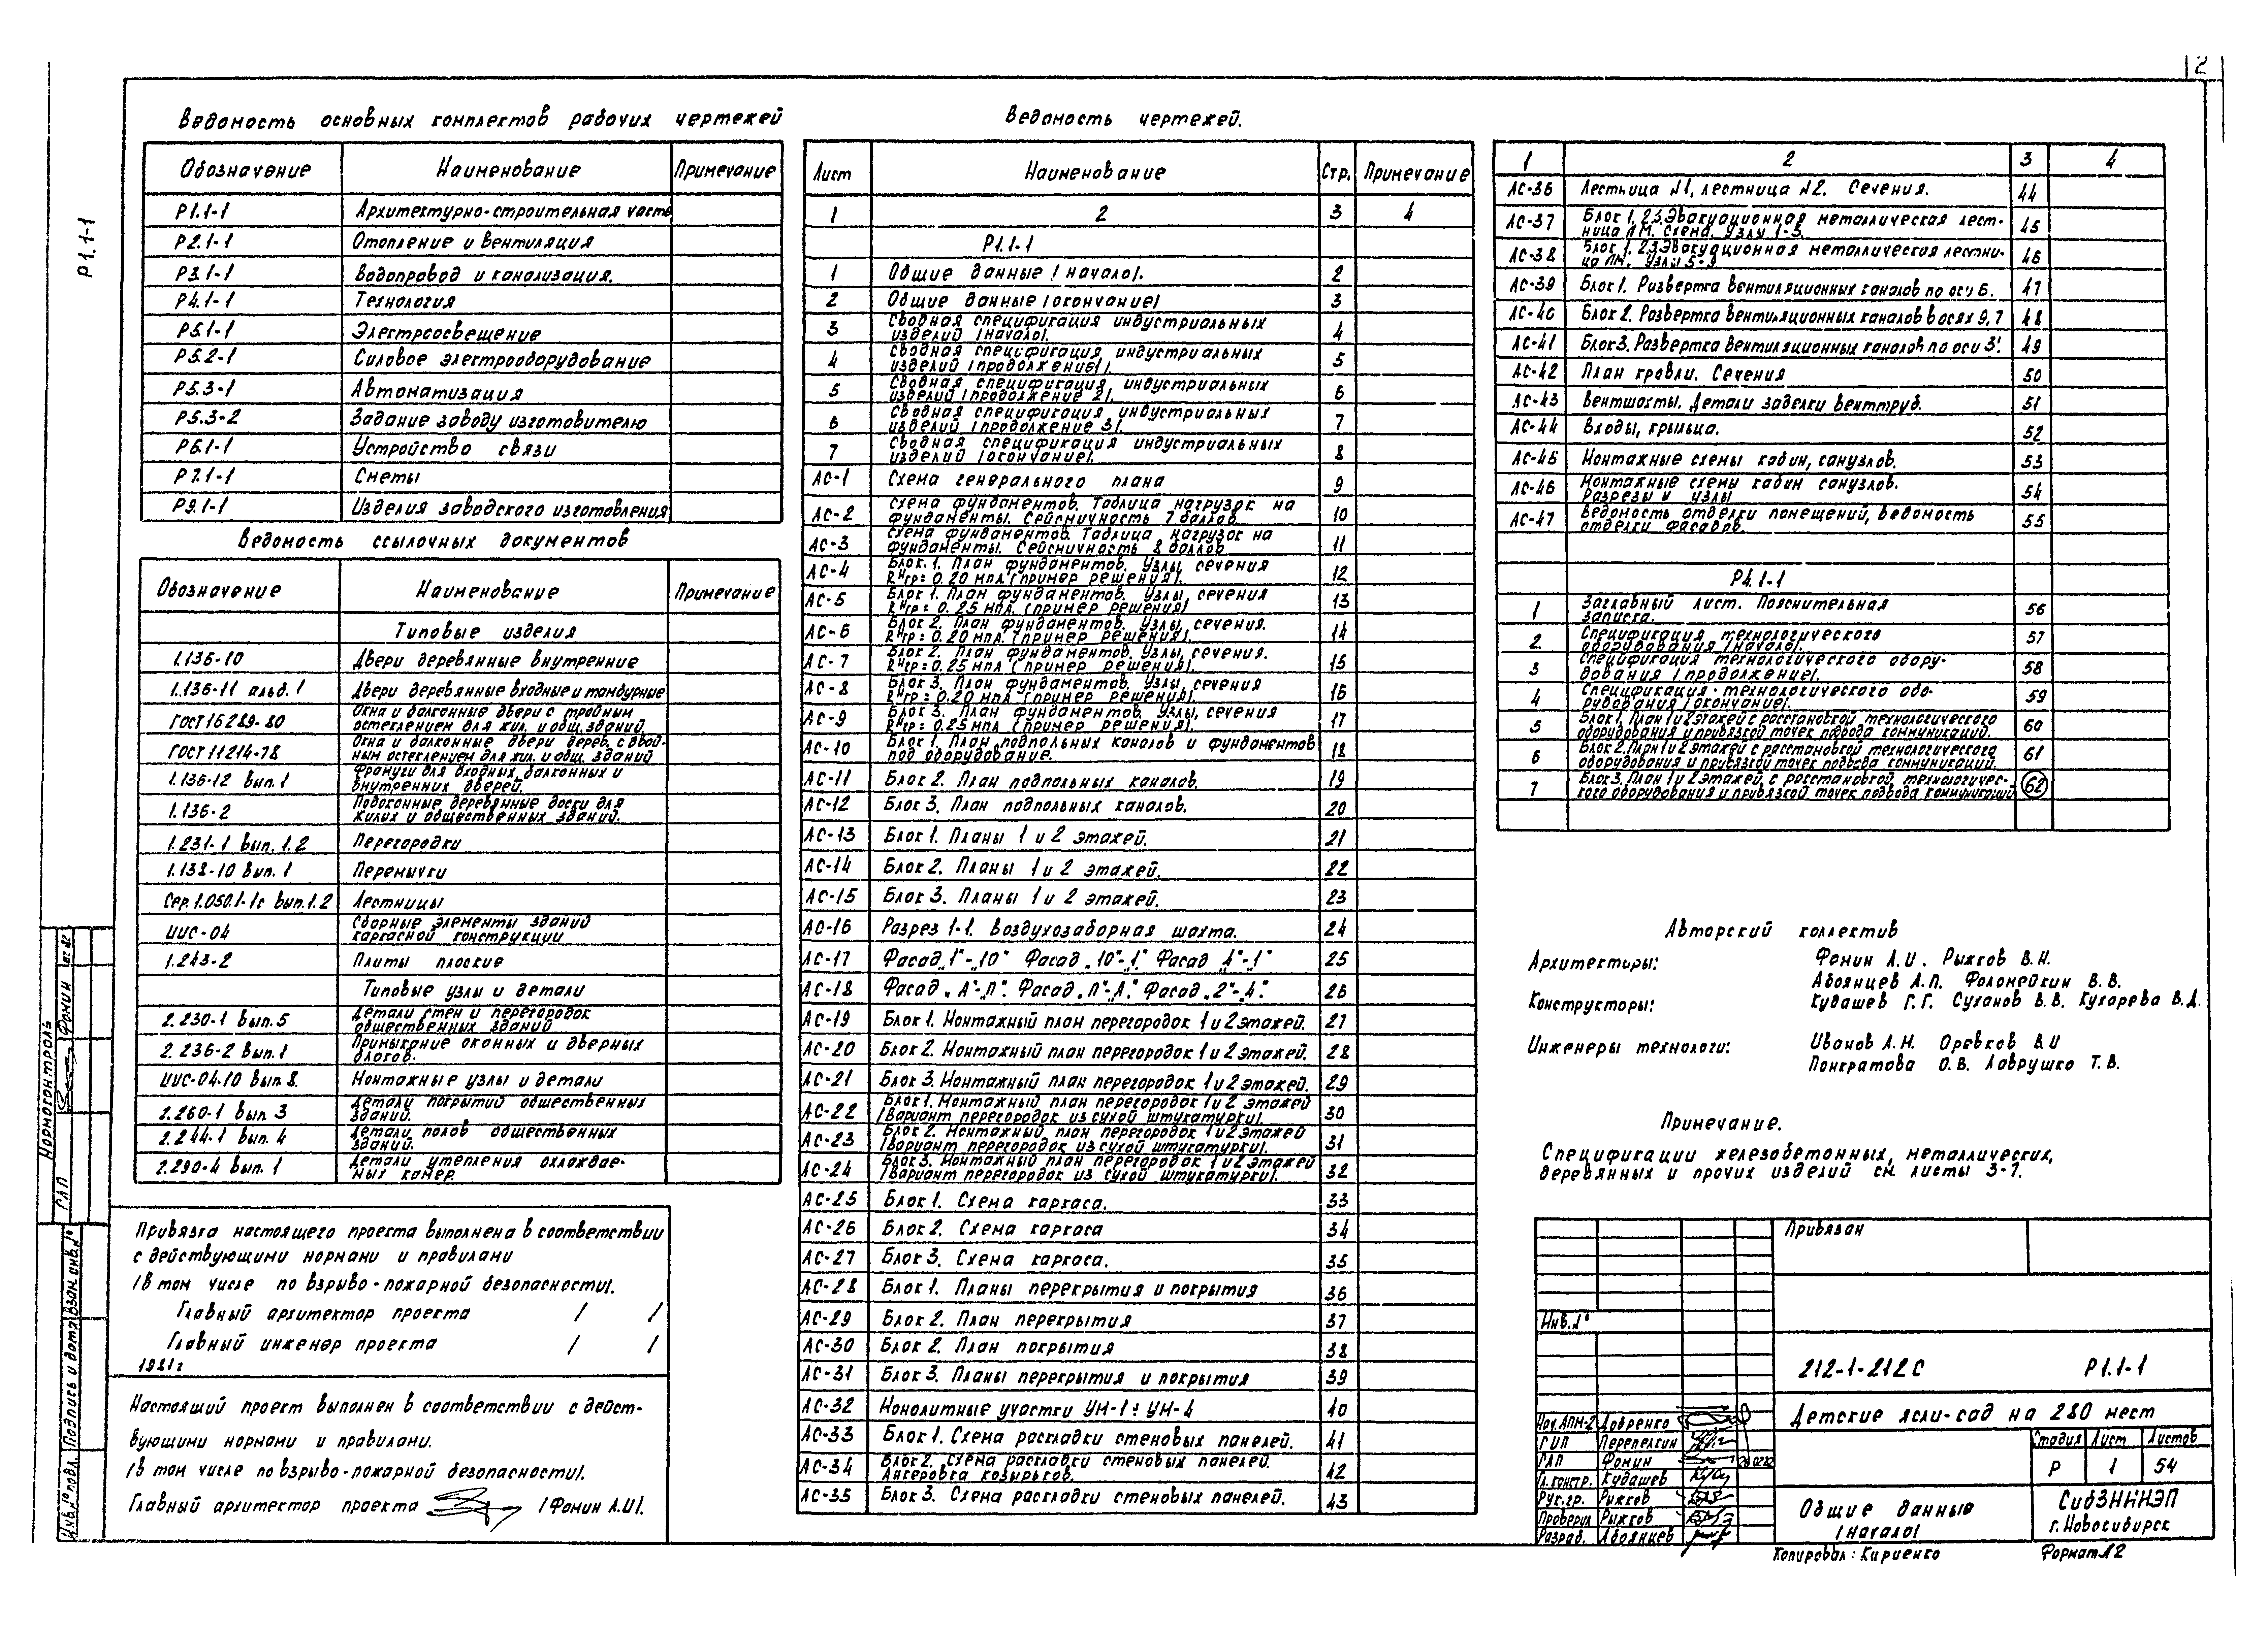 2
Р1.1-1
Ведомость основных комплектов рабочих чертежей
Обозначение Наименование Примечание
Р1.1-1 Архитектурно-строительная часть
Р2.1-1 Отопление и вентиляция
Р3.1-1 Водопровод и канализация.
Р4.1-1 Технология
Р5.1-1 Электроосвещение
Р5.2-1 Силовое электрооборудование
Р5.3-1 Автоматизация
Р5.3-2 Задание заводу изготовителю
Р6.1-1 Устройство связи
Р7.1-1 Сметы
Р9.1-1 Изделия заводского изготовления
Ведомость ссылочных документов
Обозначение Наименование Примечание
Типовые изделия
1.136-10 Двери деревянные внутренние
1.136-11 альб. 1 Двери деревянные входные и тамбурные
ГОСТ 16289-80 Окна и балконные двери с тройным
остеклением для жил. и общ. зданий.
ГОСТ 11214-78 Окна и балконные двери дерев. с двой-
ным остеклением для жил. и общ. зданий
1.136-12 вып. 1 Фрамуги для входных, балконных и
внутренних дверей.
1.136-2 Подоконные деревянные доски для
жилых и общественных зданий.
1.231-1 вып. 1.2 Перегородки
1.138-10 вып. 1 Перемычки
Сер. 1.050.1-1с вып. 1.2 Лестницы
ИИС-04 Сборные элементы зданий
каркасной конструкции
1.243-2 Плиты плоские
Типовые узлы и детали
2.230-1 вып. 5 Детали стен и перегородок
общественных зданий
2.236-2 вып. 1 Примыкание оконных и дверных
блоков.
ИИС-04-10 вып 8. Монтажные узлы и детали
2.260-1 вып 3 Детали покрытий общественных
зданий.
2.244-1 вып. 4 Детали полов общественных
зданий.
2.290-4 вып. 1 Детали утепления охлаждае-
мых камер.
Привязка настоящего проекта выполнена в соответствии
с действующими нормами и правилами
/в том числе по взрыво-пожарной безопасности/.
Главный архитектор проекта / /
Главный инженер проекта / /
1981г
Настоящий проект выполнен в соответствии с дейст-
вующими нормами и правилами.
/в том числе по взрыво-пожарной безопасности/.
Главный архитектор проекта /Фомин А.И/.
Ведомость чертежей.
Лист Наименование Стр. Примечание
1 2 3 4
Р1.1-1
1 Общие данные /начало/. 2
2 Общие данные /окончание/ 3
3 Сводная спецификация индустриальных
изделий /начало/. 4
4 Сводная спецификация индустриальных
изделий /продолжение1/. 5
5 Сводная спецификация индустриальных
изделий /продолжение 2/. 6
6 Сводная спецификация индустриальных
изделий /продолжение 3/. 7
7 Сводная спецификация индустриальных
изделий /окончание/. 8
АС-1 Схема генерального плана 9
АС-2 Схема фундаментов. Таблица нагрузок на
фундаменты. Сейсмичность 7 баллов. 10
АС-3 Схема фундаментов. Таблица нагрузок на
фундаменты. Сейсмичность 8 баллов 11
АС-4 Блок. 1. План фундаментов. Узлы, сечения
Rнгр= 0.20 мпа. (пример решения). 12
АС-5 Блок 1. План фундаментов. Узлы, сечения
Rнгр= 0.25 мпа. (пример решения) 13
АС-6 Блок 2. План фундаментов. Узлы, сечения.
Rнгр= 0.20 мпа. (пример решения). 14
АС-7 Блок 2. План фундаментов. Узлы, сечения.
Rнгр= 0.25 мпа (пример решения). 15
АС-8 Блок 3. План фундаментов. Узлы, сечения
Rнгр= 0.20 мпа (пример решения). 16
АС-9 Блок 3. План фундаментов. Узлы, сечения
Rнгр= 0.25 мпа (пример решения). 17
АС-10 Блок 1. План подпольных каналов и фундаментов
под оборудование. 18
АС-11 Блок 2. План подпольных каналов. 19
АС-12 Блок 3. План подпольных каналов. 20
АС-13 Блок 1. Планы 1 и 2 этажей. 21
АС-14 Блок 2. Планы 1 и 2 этажей. 22
АС-15 Блок 3. Планы 1 и 2 этажей. 23
АС-16 Разрез 1-1. Воздухозаборная шахта. 24
АС-17 Фасад „1"-„10" Фасад „10"-„1" Фасад „А"-„1" 25
АС-18 Фасад „А"-„П". Фасад „П"-„А." Фасад „2"-„А." 26
АС-19 Блок 1. Монтажный план перегородок 1 и 2 этажей. 27
АС-20 Блок 2. Монтажный план перегородок 1 и 2 этажей. 28
АС-21 Блок 3. Монтажный план перегородок 1 и 2 этажей. 29
АС-22 Блок 1. Монтажный план перегородок 1 и 2 этажей
/Вариант перегородок из сухой штукатурки/. 30
АС-23 Блок 2. Монтажный план перегородок 1 и 2 этажей
/Вариант перегородок из сухой штукатурки/. 31
АС-24 Блок 3. Монтажный план перегородок 1 и 2 этажей
/Вариант перегородок из сухой штукатурки/. 32
АС-25 Блок 1. Схема каркаса. 33
АС-26 Блок 2. Схема каркаса 34
АС-27 Блок 3. Схема каркаса. 35
АС-28 Блок 1. Планы перекрытия и покрытия 36
АС-29 Блок 2. План перекрытия 37
АС-30 Блок 2. План покрытия 38
АС-31 Блок 3. Планы перекрытия и покрытия 39
АС-32 Монолитные участки УМ-1÷УМ-4 40
АС-33 Блок 1. Схема раскладки стеновых панелей. 41
АС-34 Блок 2. Схема раскладки стеновых панелей.
Анкеровка козырьков. 42
АС-35 Блок 3. Схема раскладки стеновых панелей. 43
1 2 3 4
АС-36 Лестница №1, лестница №2. Сечения. 44
АС-37 Блок 1, 2,3. Эвакуационная металлическая лест-
ница ЛМ. Схема. Узлы 1-5. 45
АС-38 Блок 1. 2,3 Эвакуационная металлическая лестни-
ца ЛМ. Узлы 5-9 46
АС-39 Блок 1. Развертка вентиляционных каналов по оси Б. 47
АС-40 Блок 2. Развертка вентиляционных каналов в осях 9, 7 48
АС-41 Блок 3. Развертка вентиляционных каналов по оси 3'. 49
АС-42 План кровли. Сечения 50
АС-43 Вентшахты. Детали заделки венттруб. 51
АС-44 Входы, крыльца. 52
АС-45 Монтажные схемы кабин, санузлов. 53
АС-46 Монтажные схемы кабин санузлов.
Разрезы и узлы 54
АС-47 Ведомость отделки помещений, ведомость
отделки фасадов. 55
Р4.1-1
1 Заглавный лист. Пояснительная
записка. 56
2. Спецификация технологического
оборудования /начало/. 57
3 Спецификация технологического обору-
дования /продолжение/. 58
4 Спецификация технологического обо-
рудования /окончание/. 59
5 Блок 1. План 1 и 2 этажей с расстановкой технологического
оборудования и привязкой точек подвода коммуникаций. 60
6 Блок 2. План 1 и 2 этажей с расстановкой технологического
оборудования и привязкой точек подвода коммуникаций. 61
7 Блок 3. План 1 и 2 этажей, с расстановкой технологичес-
кого оборудования и привязкой точек подвода коммуникаций 62
Авторский коллектив
Архитекторы: Фомин А.И. Рыжков В.Н.
Абоянцев А.П. Фоломейкин В.В.
Конструкторы: Кудашев Г.Г. Суханов В.В. Кухарева В.Д.
Инженеры технологи: Иванов А.Н. Оревков В.И
Панкратова О.В. Лаврушко Т.В.
Примечание.
Спецификации железобетонных, металлических,
деревянных и прочих изделий см. листы 3-7.
Привязан
Инв.№
212-1-212 С Р1.1-1
Детские ясли-сад на 280 мест
Стадия Лист Листов
Р 1 54
Общие данные
/Начало/
СибЗНИИЭП
г. Новосибирск
Нач.АПМ-2 Довренко
ГИП Перепелкин
ГАП Фомин
Гл.констр. Кудашев
Рук.гр. Рыжков
Проверил Рыжков
Разраб. Абоянцев
Копировал: Кириенко Формат А2
Нормоконтроль
ГАП Фомин
Инв.№ подл. Подпись и дата Взам. инв.№